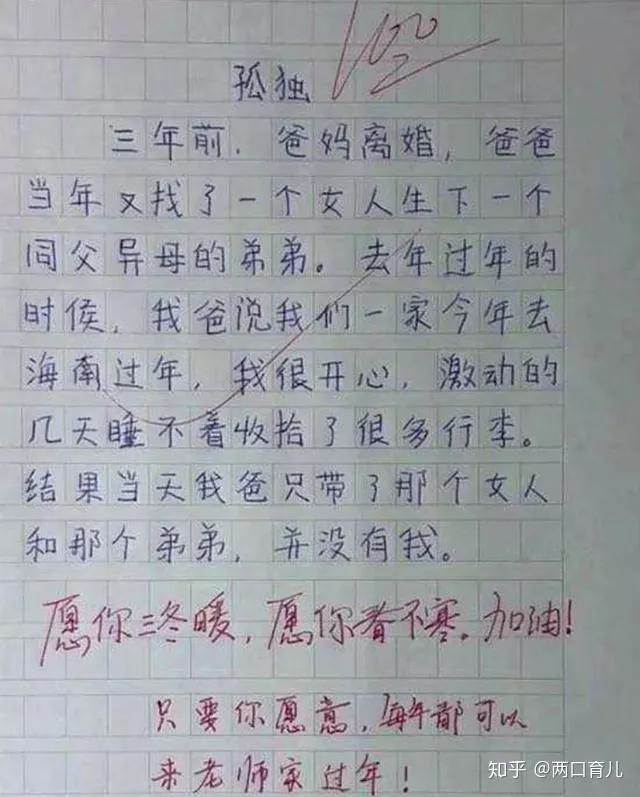 100
孤独
三年前，爸妈离婚，爸爸
当年又找了一个女人生下一个
同父异母的弟弟。去年过年的
时侯，我爸说我们一家今年去
海南过年，我很开心，激动的
几天睡不着收拾了很多行李。
结果当天我爸只带了那个女人
和那个弟弟，并没有我。
愿你三冬暖，愿你春不寒。加油！
只要你愿意，每年都可以
来老师家过年！
知乎 @两口育儿